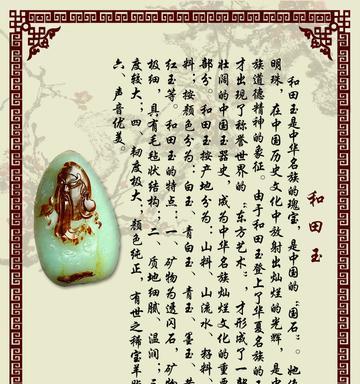 和田玉
和田玉是中华名族的瑰宝，是中国的“国石”。她
明珠，在中国历史文化中放射出灿烂的光辉，是中
族道德精神的象征。由于和田玉登上了华夏名族的
才出现了称誉世界的“东方艺术”，才形成了一部
壮阔的中国玉器史，成为中华名族灿烂文化的重要
部分。和田玉按产地分为：山料；山流水、籽料
料；按颜色分为：白玉、青白玉、青玉、墨玉、黄
红玉等。和田玉的特点：一、矿物为透闪石，矿物
极细，具有毛毡状结构；二、质地细腻、温润；三
度较大；四、韧度极大、颜色纯正，有世之稀宝羊脂
六、声音优美。